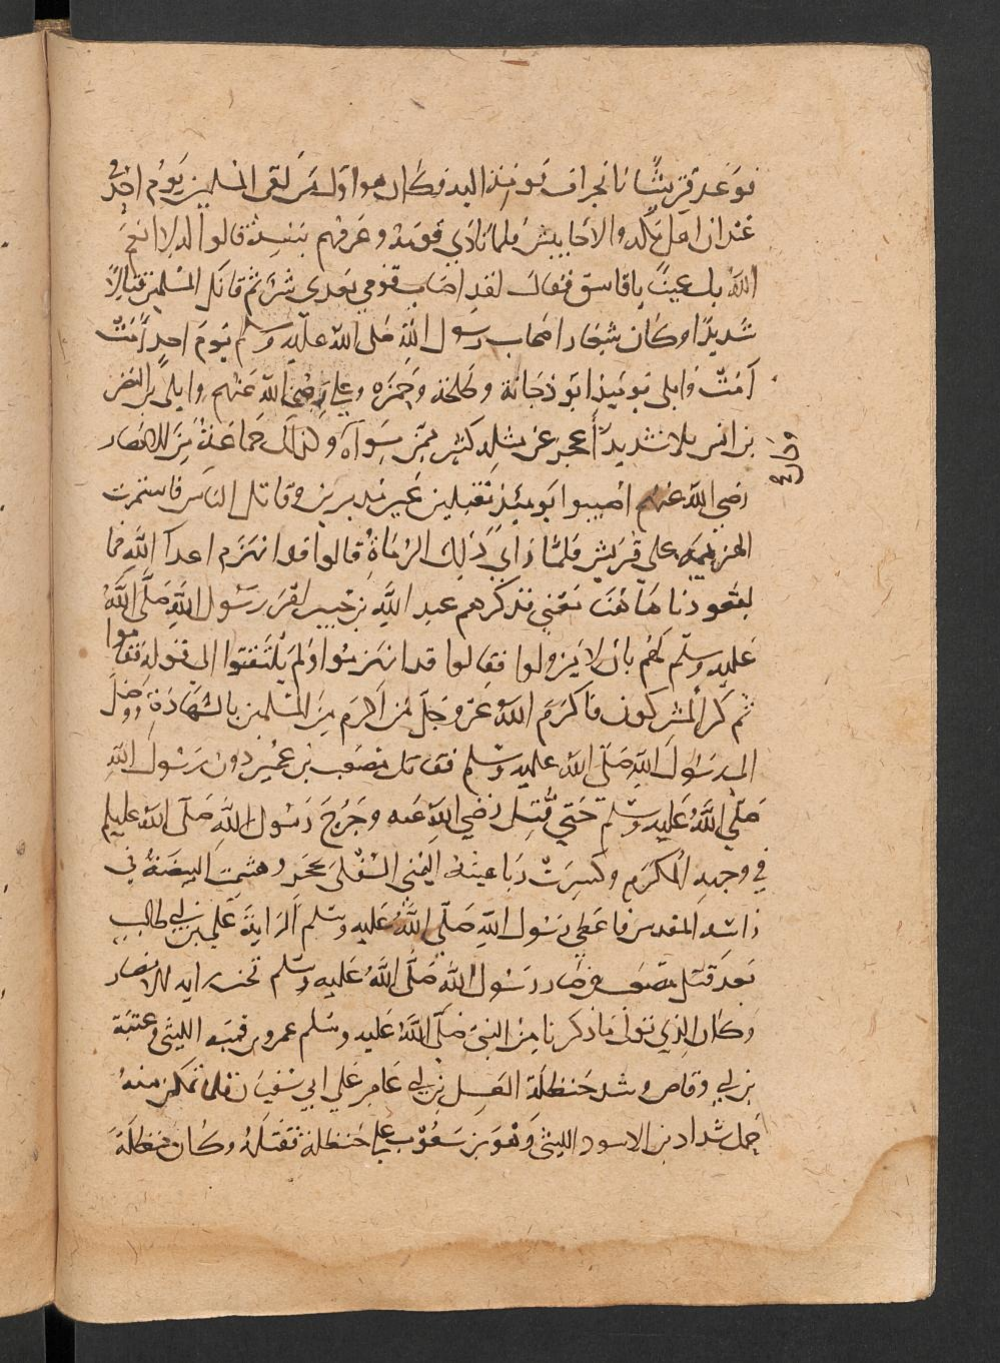 فوعد قريشا بانحراف قومه اليه فكان هو اول من لقى المسلمين يوم احد
عبدان اهل مكة والاحابيش فلما نادي قومه وعرفهم بنفسه قالوا له لا انعم
الله بك عينا يا فاسق فقال لقد اصاب قومي بعدي شر ثم قاتل المسلمين قتالا
شديدا وكان شعار اصحاب رسول الله صلى الله عليه وسلم يوم احد امت
امت وابلى يوميذ ابو دجانة وطلحة وحمزه وعلي رضي الله عنهم وابلى بن النضر
بن انس بلا شديدا عجز عن مثله كثير ممن سواه وكذلك جماعة من الانصار
رضي الله عنهم اصيبوا يوميذ مقبلين غير مدبرين وقاتل الناس فاستمرت
الهزيمة علي قريش فلما راي ذلك الرماة قالوا قد انهزم اعدا الله فما
لقعودنا هاهنا معني فذكرهم عبد الله بن جبير امر رسول الله صلى الله
عليه وسلم لهم بان لا يزولوا فقالوا قد انهزموا ولم يلتفتوا الى قوله فقاموا
ثم كر المشركون فاكرم الله عز وجل من اكرم من المسلمين بالشهادة ووصل
الى رسول الله صلى الله عليه وسلم فقاتل مصعب بن عمير دون رسول الله
صلى الله عليه وسلم حتي قتل رضي الله عنه وجرح رسول الله صلى الله عليه
في وجهه المكرم وكسرت رباعيته اليمنى السفلى بحجر وهشمت البيضة في
راسه المقدس فاعطي رسول الله صلى الله عليه وسلم الراية علي بن ابي طالب
بعد قتل مصعب وصار رسول الله صلى الله عليه وسلم تحت راية الانصار
وكان الذي تولى ما ذكرنا من النبي صلى الله عليه وسلم عمرو بن قميه الليثي وعتبة
بن ابي وقاص وشد حنظلة الغسيل بن ابي عامر علي ابي سفيان فلما تمكن منه
حمل شداد بن الاسود الليثي وهو بن شعوب علي حنظلة فقتله وكان حنظلة